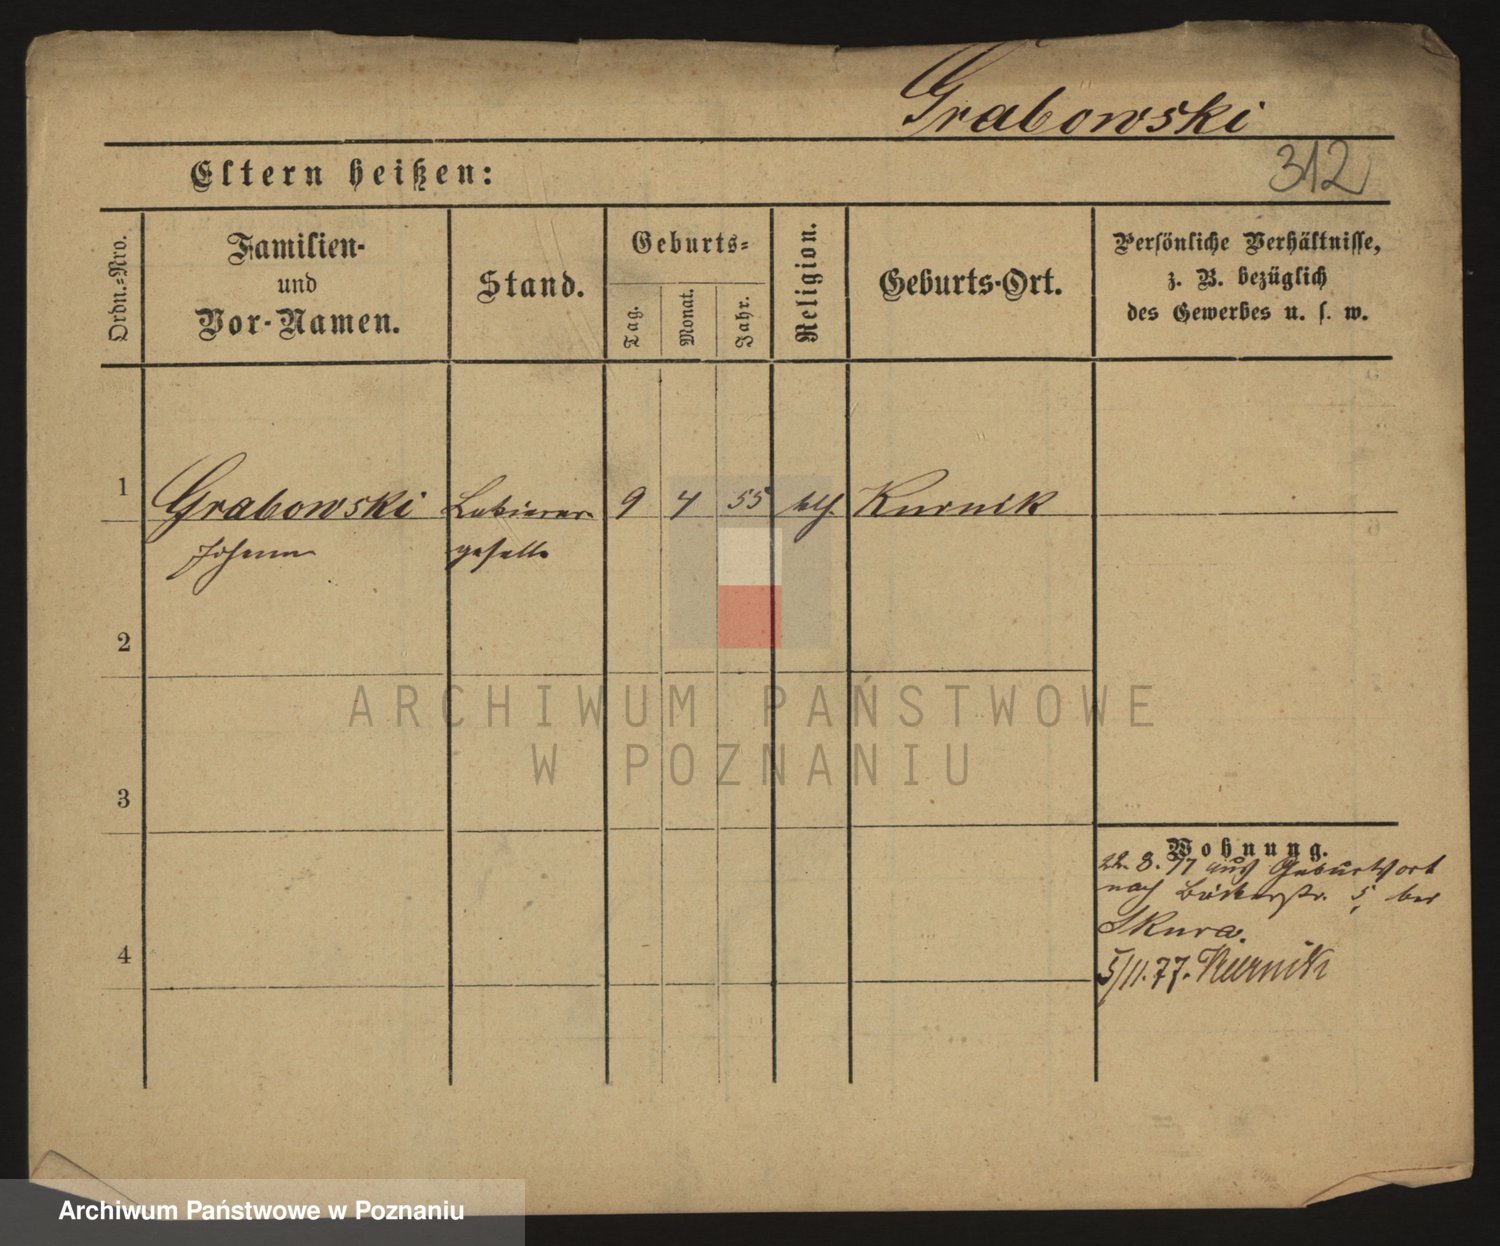 Grabowski
312
Eltern heißen:
Ordn.-Nro.
Familien-
und
Vor-Namen.
Stand.
Geburts-
Tag.
Monat.
Jahr.
Religion.
Geburts-Ort.
Persönliche Verhältnisse,
z. B. bezüglich
des Gewerbes u. s. w.
1
Grabowski
Johann
geselle
9
4
55
kth.
Kurnik
2
3
4
Wohnung.
22. 3. 77 aus Geburtsort
nach Bäckerstr. 5, bei
Skura.
5/11. 77. Kurnik
ARCHIWUM PAŃSTWOWE
W POZNANIU
Archiwum Państwowe w Poznaniu